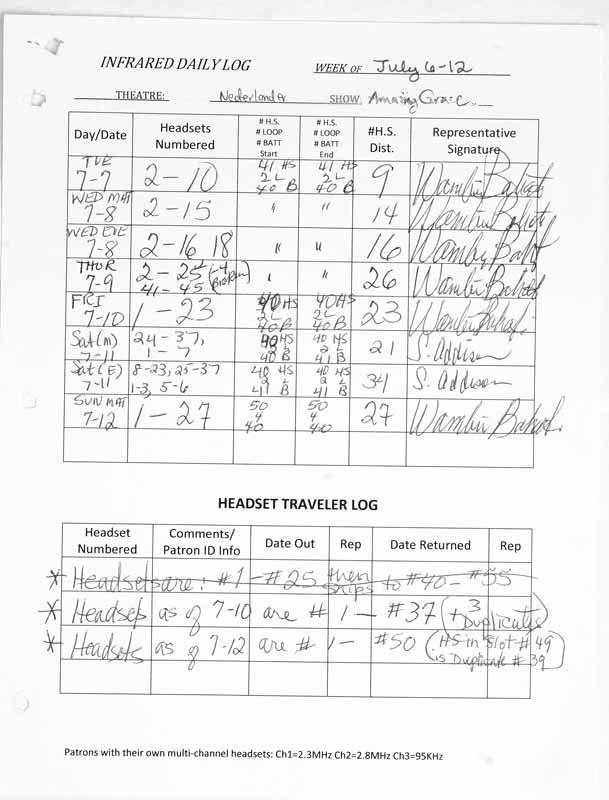 INFRARED DAILY LOG WEEK OF July 6-12
THEATRE: Nederlander SHOW: Amazing Grace
Day/Date Headsets Numbered # H.S. # LOOP # BATT Start # H.S. # LOOP # BATT End #H.S. Dist. Representative Signature
TUE 7-7 2-10 41 HS 2 L 40 B 41 HS 2 L 40 B 9
WED MAT 7-8 2-15 " " 14
WED EVE 7-8 2-16 18 " " 16
THUR 7-9 2-25 (-4 Broken) 41-45 " " 26
FRI 7-10 1-23 40 HS 2 L 40 B 40 HS 2 L 40 B 23
Sat (m) 7-11 24-37, 1-7 40 HS 2 L 40 B 40 HS 2 L 41 B 21 S. Addison
Sat (E) 7-11 8-23, 25-37 1-3, 5-6 40 HS 2 L 41 B 40 HS 2 L 41 B 34 S. Addison
SUN MAT 7-12 1-27 50 4 40 50 4 40 27
HEADSET TRAVELER LOG
Headset Numbered Comments/ Patron ID Info Date Out Rep Date Returned Rep
* Headsets are: #1 - #25 then skips to #40 - #55
* Headsets as of 7-10 are # 1 - #37 (+3 Duplicates)
* Headsets as of 7-12 are # 1 - #50 (HS in Slot #49 is Duplicate #39)
Patrons with their own multi-channel headsets: Ch1=2.3MHz Ch2=2.8MHz Ch3=95KHz